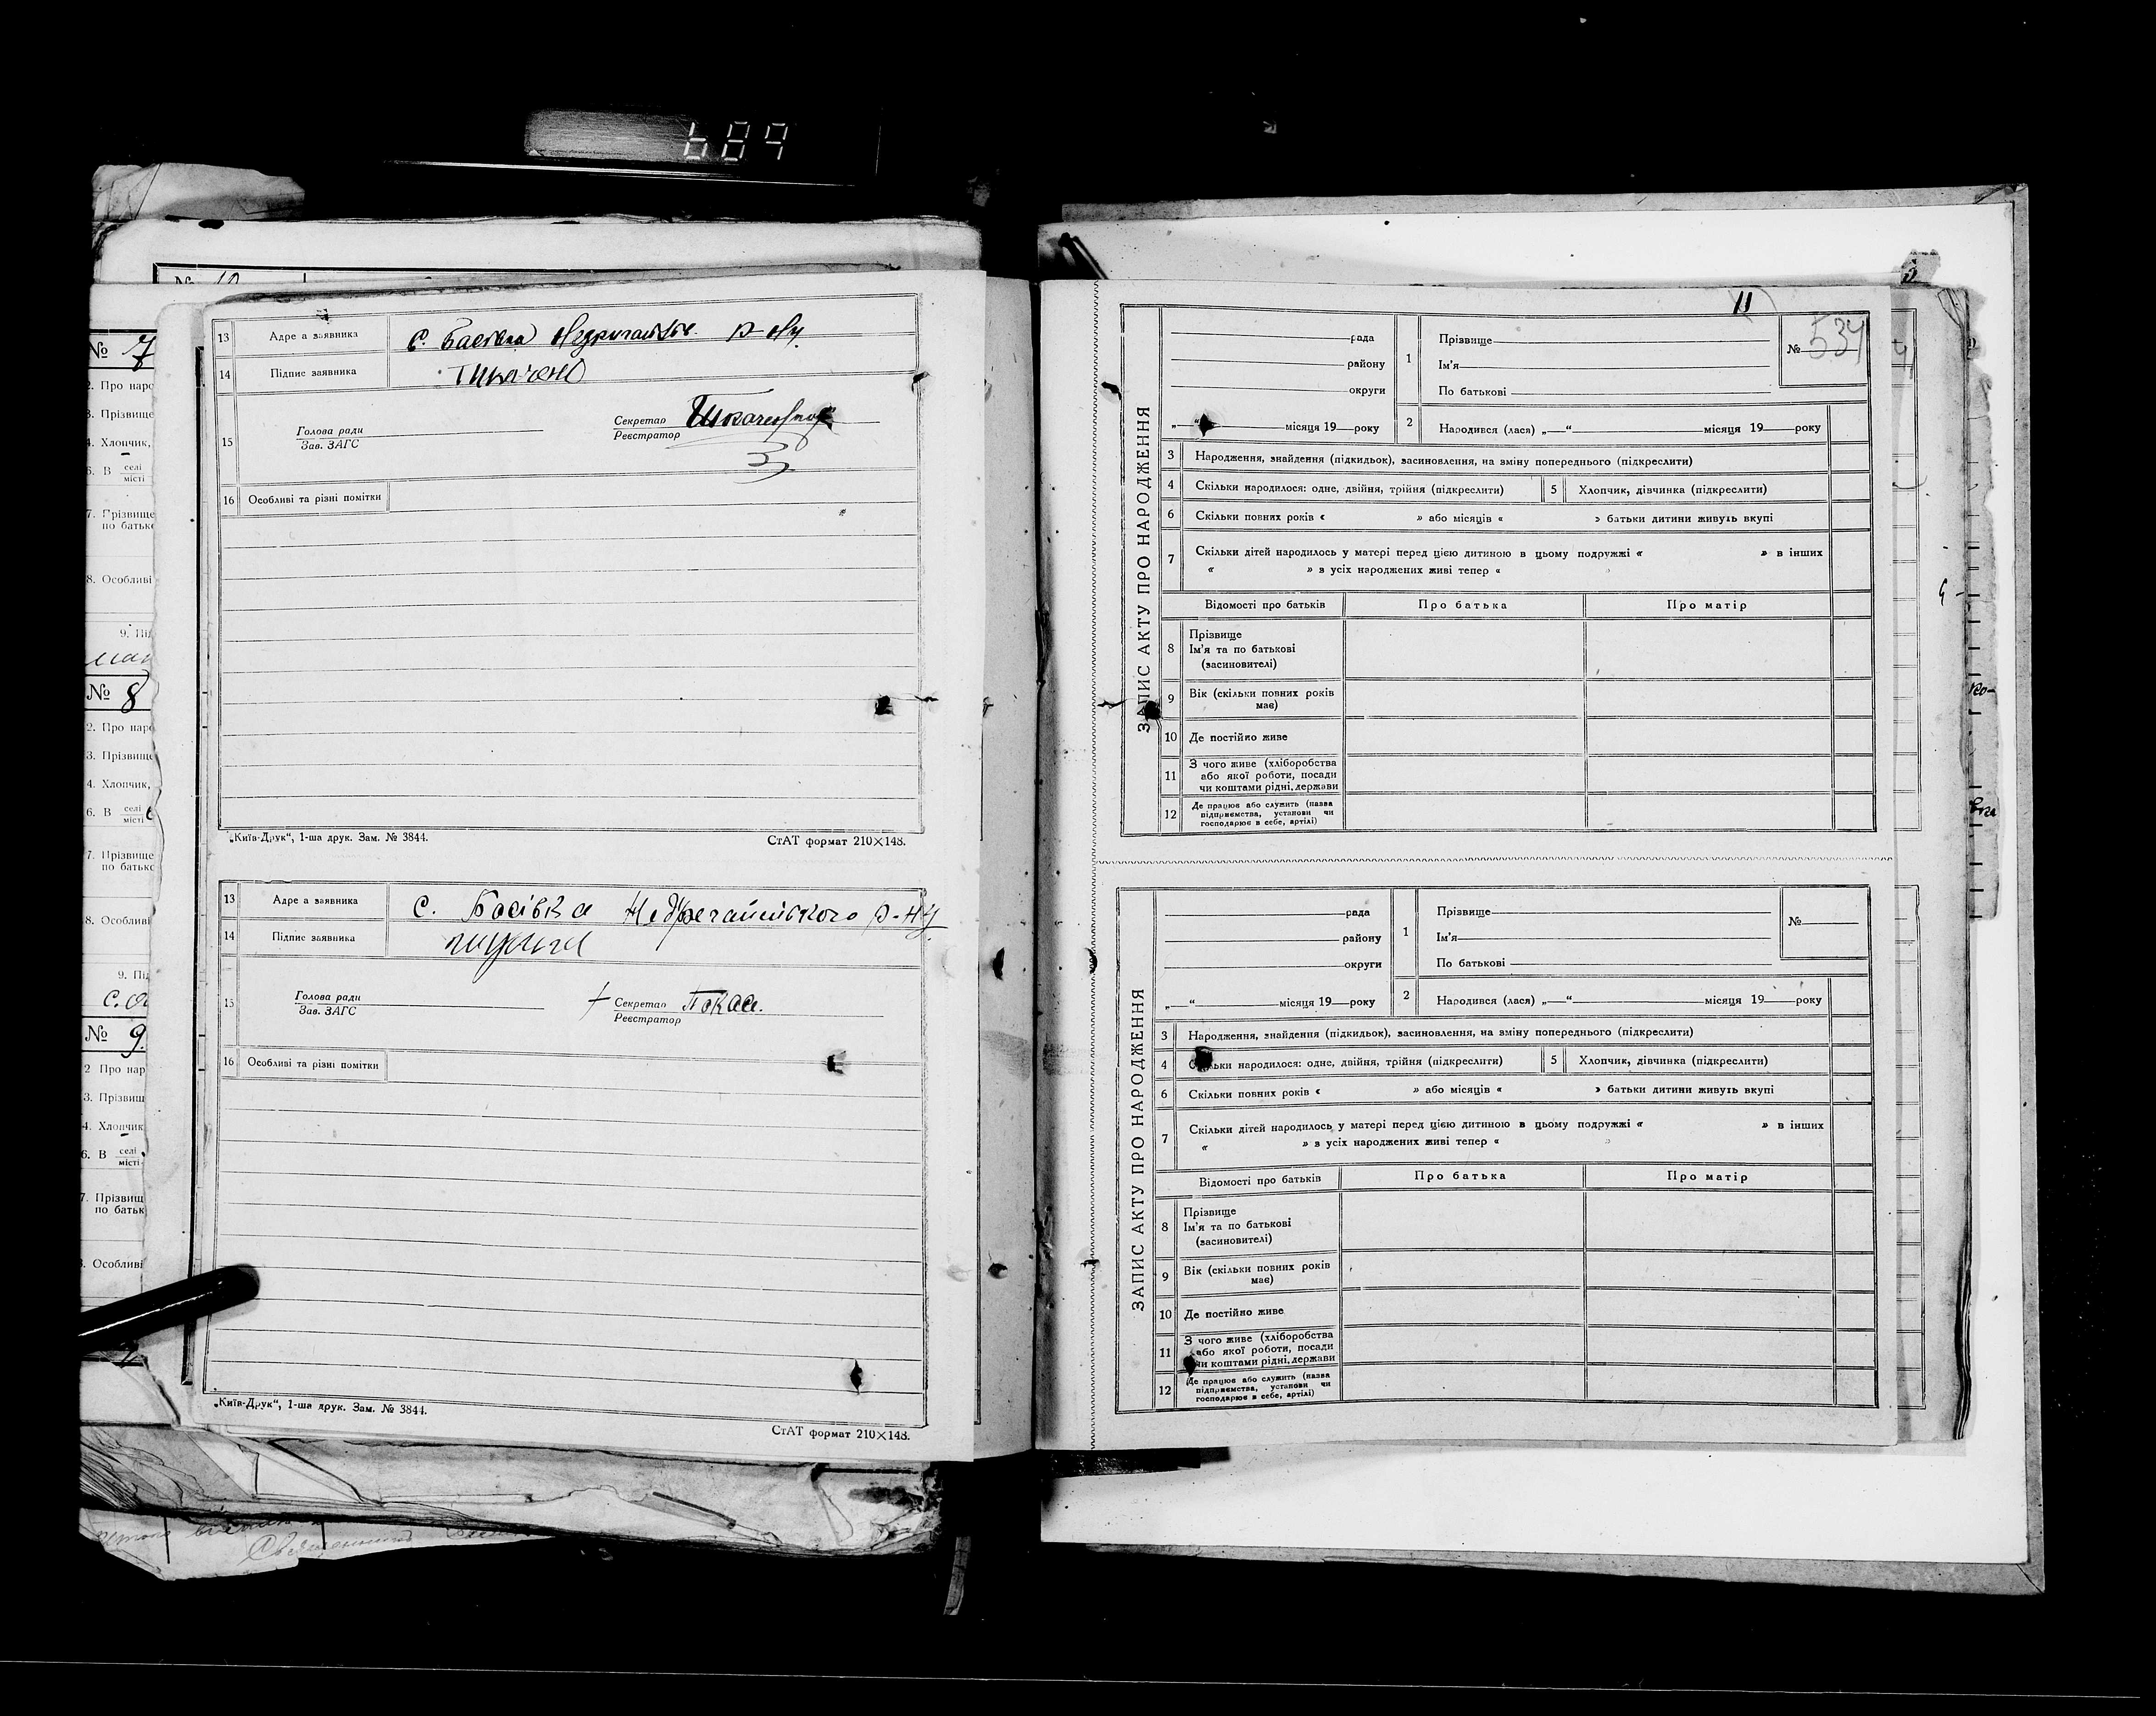 689
№ 7
№ 8
№ 9
13 Адре а заявника с. Басівка Недригайлів. р-ну
14 Підпис заявника
15 Голова ради
Зав. ЗАГС
Секретар
Реєстратор
16 Особливі та різні помітки
„Київ-Друк“, 1-ша друк. Зам. № 3844. СтАТ формат 210×148.
13 Адре а заявника с. Басівка Недригайлівського р-ну
14 Підпис заявника
15 Голова ради
Зав. ЗАГС
Секретар
Реєстратор
16 Особливі та різні помітки
„Київ-Друк“, 1-ша друк. Зам. № 3844.
СтАТ формат 210×148.
11
ЗАПИС АКТУ ПРО НАРОДЖЕННЯ
рада 1 Прізвище № 534
району Ім'я
округи По батькові
„ “ місяця 19 року 2 Народився (лася) „ “ місяця 19 року
3 Народження, знайдення (підкидьок), засиновлення, на зміну попереднього (підкреслити)
4 Скільки народилося: одне, двійня, трійня (підкреслити) 5 Хлопчик, дівчинка (підкреслити)
6 Скільки повних років « » або місяців « » батьки дитини живуть вкупі
7 Скільки дітей народилось у матері перед цією дитиною в цьому подружжі « » в інших
« » з усіх народжених живі тепер «
Відомості про батьків Про батька Про матір
8 Прізвище
Ім'я та по батькові
(засиновителі)
9 Вік (скільки повних років
має)
10 Де постійно живе
11 З чого живе (хліборобства
або якої роботи, посади
чи коштами рідні, держави
12 Де працює або служить (назва
підприємства, установи чи
господарює в себе, артілі)
ЗАПИС АКТУ ПРО НАРОДЖЕННЯ
рада 1 Прізвище №
району Ім'я
округи По батькові
„ “ місяця 19 року 2 Народився (лася) „ “ місяця 19 року
3 Народження, знайдення (підкидьок), засиновлення, на зміну попереднього (підкреслити)
4 Скільки народилося: одне, двійня, трійня (підкреслити) 5 Хлопчик, дівчинка (підкреслити)
6 Скільки повних років « » або місяців « » батьки дитини живуть вкупі
7 Скільки дітей народилось у матері перед цією дитиною в цьому подружжі « » в інших
« » з усіх народжених живі тепер «
Відомості про батьків Про батька Про матір
8 Прізвище
Ім'я та по батькові
(засиновителі)
9 Вік (скільки повних років
має)
10 Де постійно живе
11 З чого живе (хліборобства
або якої роботи, посади
чи коштами рідні, держави
12 Де працює або служить (назва
підприємства, установи чи
господарює в себе, артілі)